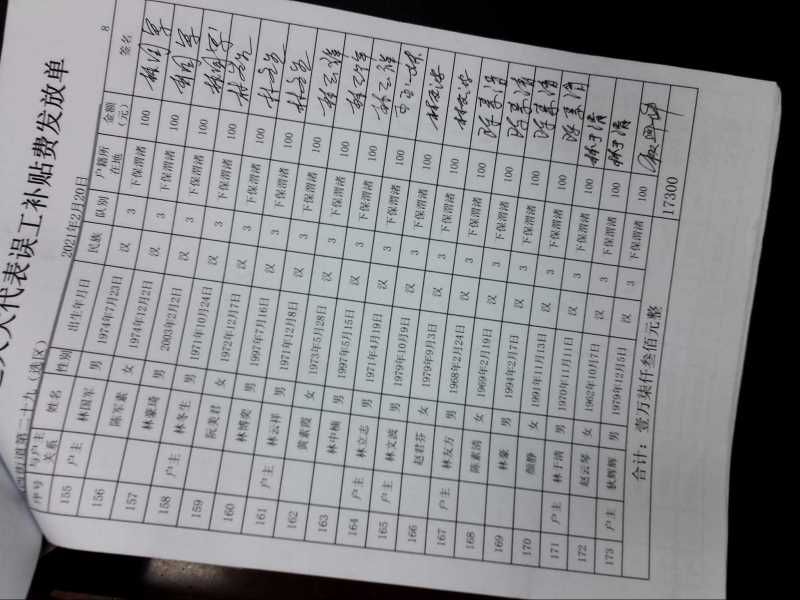 人大代表误工补贴费发放单
街道第二十九（选区） 2021年2月20日 8
序号 与户主关系 姓名 性别 出生年月日 民族 队别 户籍所在地 金额（元） 签名
155 户主 林国军 男 1974年7月23日 汉 3 下保渭渚 100 林国军
156 陈军素 女 1974年12月2日 汉 3 下保渭渚 100 林国军
157 林豪琦 男 2003年2月2日 汉 3 下保渭渚 100 林国军
158 户主 林冬生 男 1971年10月24日 汉 3 下保渭渚 100
159 阮美君 女 1972年12月7日 汉 3 下保渭渚 100
160 林博奕 男 1997年7月16日 汉 3 下保渭渚 100
161 户主 林云祥 男 1971年12月8日 汉 3 下保渭渚 100 林云祥
162 黄素霞 女 1973年5月28日 汉 3 下保渭渚 100 林云祥
163 林中楠 男 1997年5月15日 汉 3 下保渭渚 100 林云祥
164 户主 林立志 男 1971年4月19日 汉 3 下保渭渚 100
165 户主 林文波 男 1979年10月9日 汉 3 下保渭渚 100
166 赵君芬 女 1979年9月3日 汉 3 下保渭渚 100
167 户主 林友方 男 1968年2月24日 汉 3 下保渭渚 100 陈素清
168 陈素清 女 1969年2月19日 汉 3 下保渭渚 100 陈素清
169 林豪 男 1994年2月7日 汉 3 下保渭渚 100 陈素清
170 颜静 女 1991年11月13日 汉 3 下保渭渚 100 陈素清
171 户主 林于清 男 1970年11月11日 汉 3 下保渭渚 100 林于清
172 赵云琴 女 1962年10月7日 汉 3 下保渭渚 100 林于清
173 户主 狄辉辉 男 1979年12月5日 汉 3 下保渭渚 100
合计：壹万柒仟叁佰元整 17300